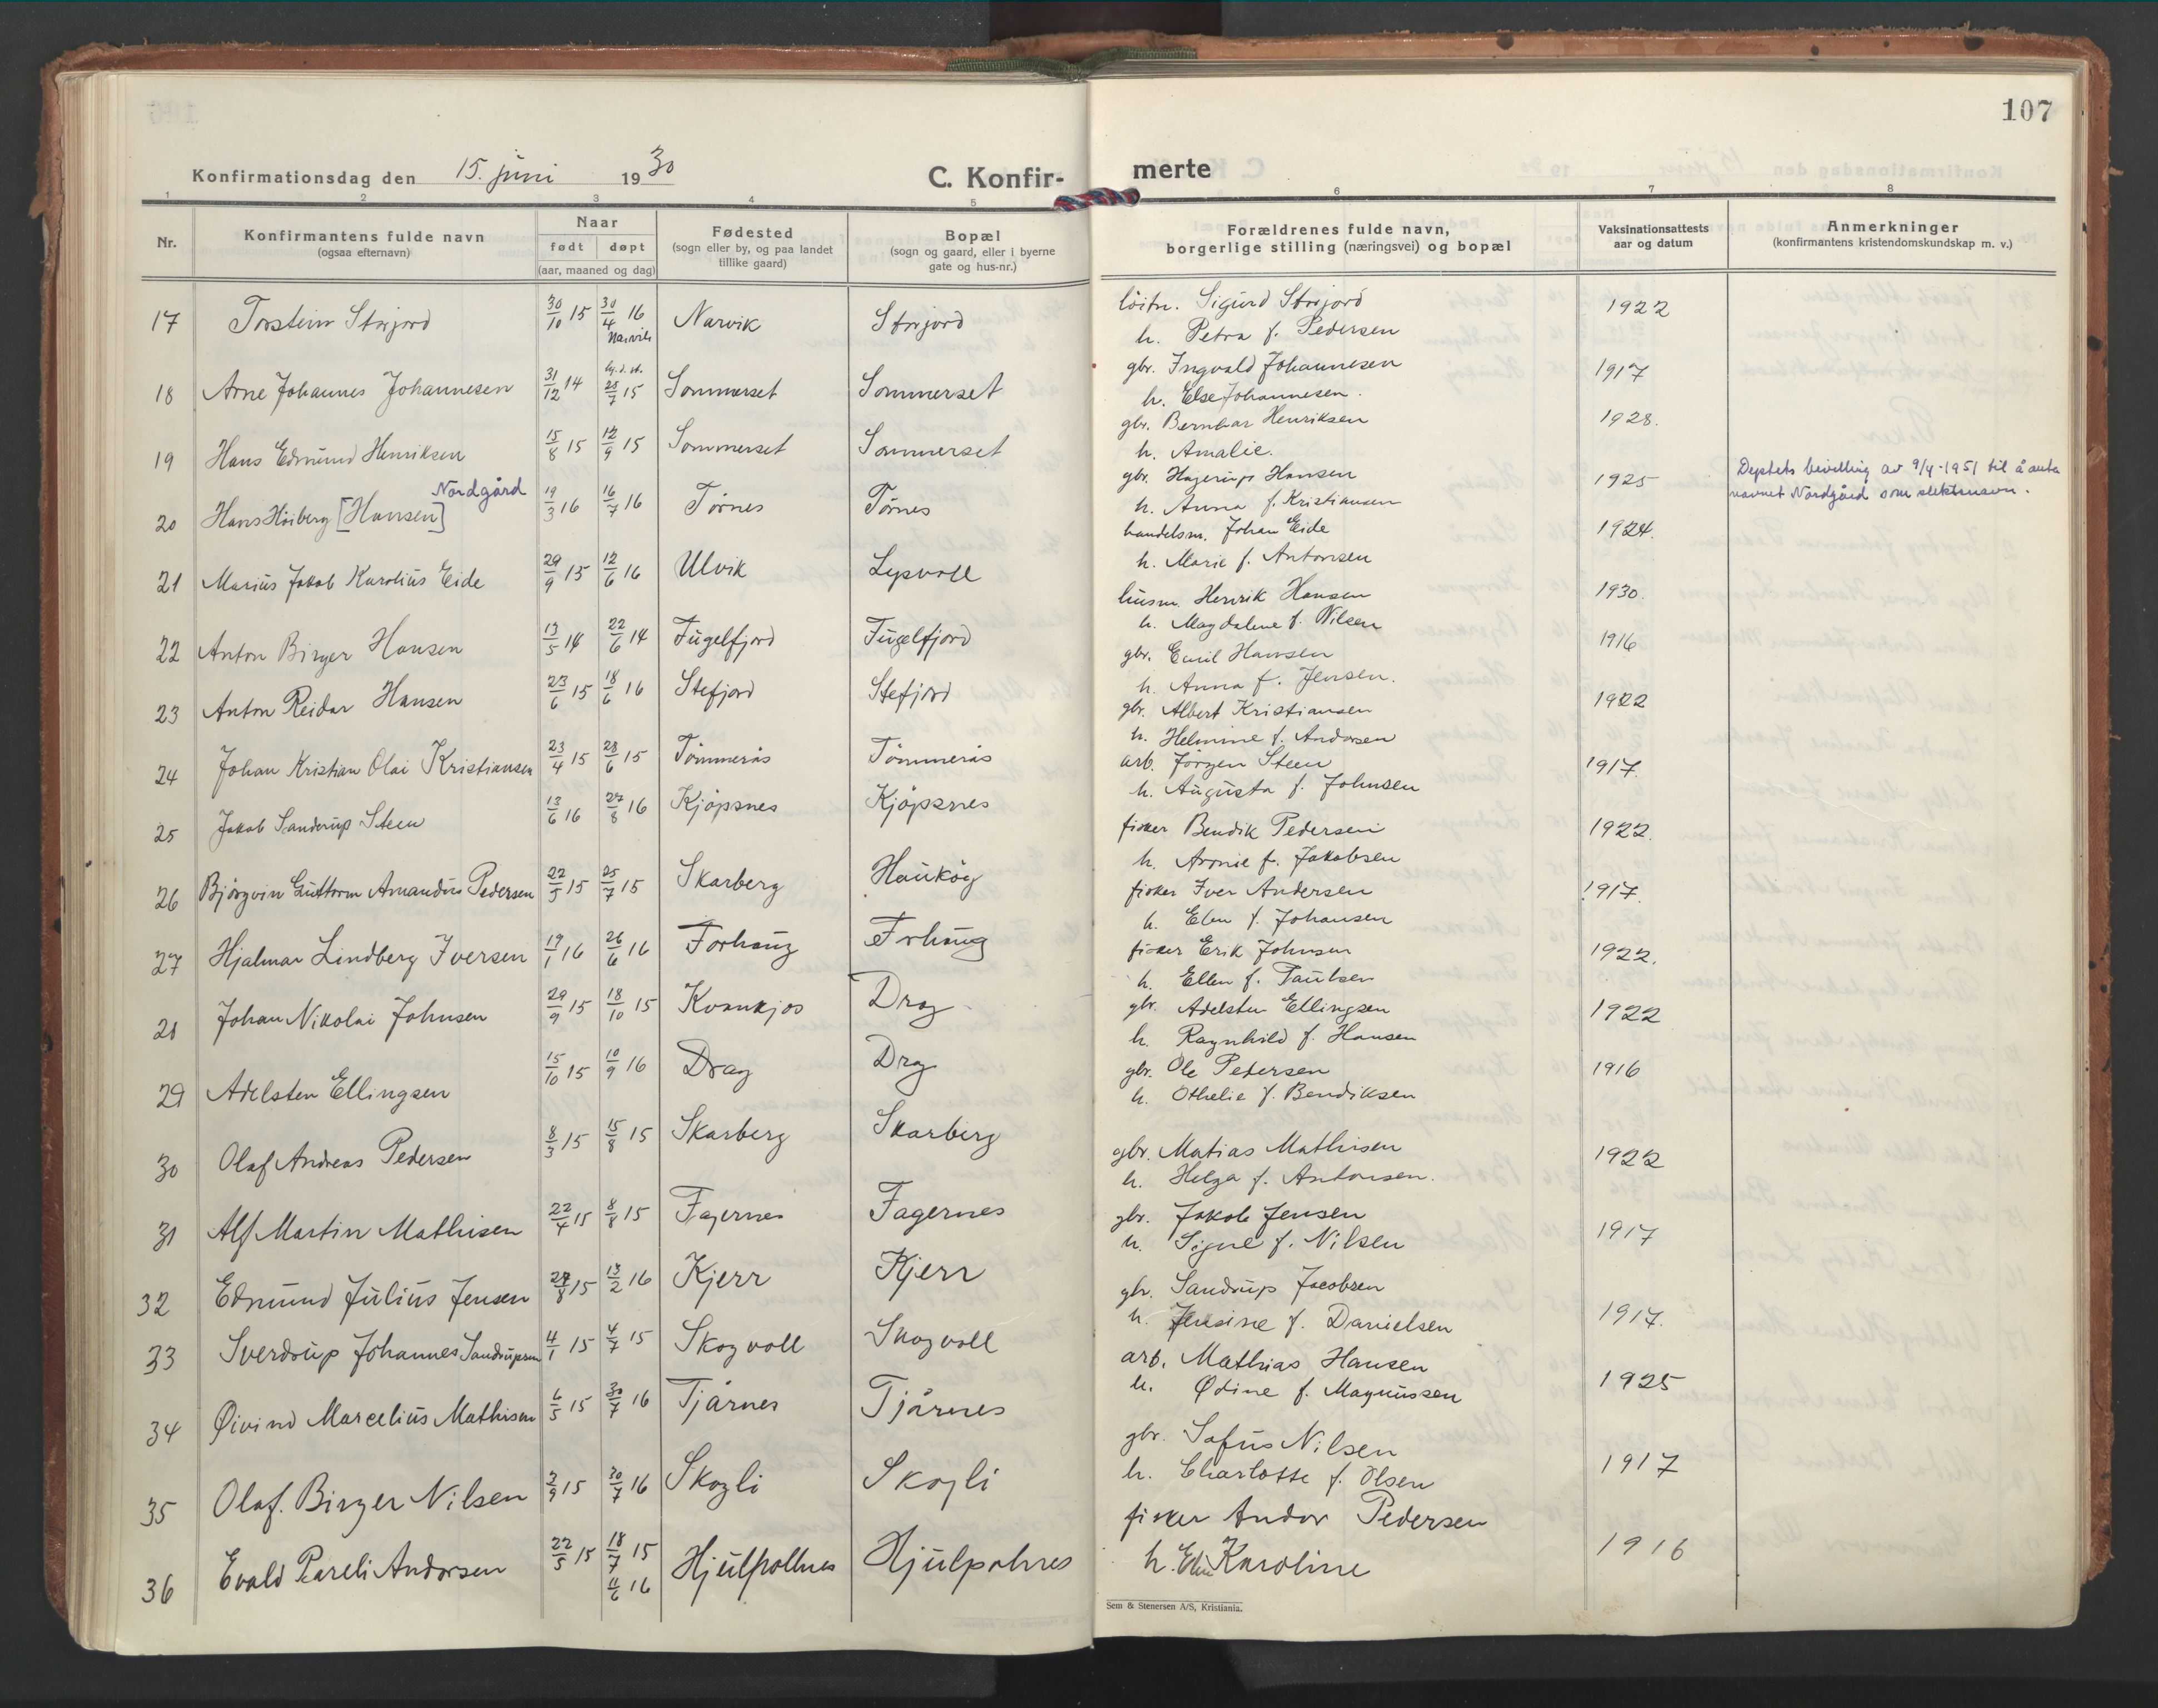 107
Konfirmationsdag den 15. juni 1930
C. Konfir-
merte
1 2 3 4 5 6 7 8
Nr.
Konfirmantens fulde navn
(ogsaa efternavn)
Naar
født døpt
(aar, maaned og dag)
Fødested
(sogn eller by, og paa landet
tillike gaard)
Bopæl
(sogn og gaard, eller i byerne
gate og hus-nr.)
Forældrenes fulde navn,
borgerlige stilling (næringsvei) og bopæl
Vaksinationsattests
aar og datum
Anmerkninger
(konfirmantens kristendomskundskap m. v.)
17 Torstein Storjord 30/10 15 30/4 16 Narvik Narvik Storjord
löitn. Sigurd Storjord 1922
h. Petra f. Pedersen
18 Arne Johannes Johannesen 31/12 14 28/7 15 Sommerset Sommerset
gbr. Ingvald Johannesen 1917
h. Else Johannesen.
19 Hans Edmund Henriksen 15/8 15 12/9 15 Sommerset Sommerset
gbr. Bernhar Henriksen 1928.
h. Amalie.
Nordgård
20 Hans Höiberg [Hansen] 19/3 16 16/7 16 Törnes Törnes
gbr. Hagerup Hansen 1925
h. Anna f. Kristiansen
Deptets bevilling av 9/4-1951 til å anta
navnet Nordgård som slektsnavn.
21 Marius Jakob Karolius Eide 29/9 15 12/6 16 Ulvik Lysvoll
handelsm. Johan Eide 1924.
h. Marie f. Antonsen
22 Anton Birger Hansen 13/5 14 22/6 14 Fugelfjord Fugelfjord
husm. Henrik Hansen 1930.
h. Magdalene f. Nilsen
23 Anton Reidar Hansen 23/6 15 18/6 16 Stefjord Stefjord
gbr. Emil Hansen 1916
h. Anna f. Jensen.
24 Johan Kristian Olai Kristiansen 23/4 15 28/6 15 Tömmerås Tömmerås
gbr. Albert Kristiansen 1922
h. Helmine f. Andorsen
25 Jakob Sanderup Steen 13/6 16 27/8 16 Kjöpsnes Kjöpsnes
arb. Jörgen Steen 1917.
h. Augusta f. Johnsen
26 Björgvin Guttorm Amandus Pedersen 22/5 15 25/7 15 Skarberg Haukög
fisker Bendik Pedersen 1922.
h. Aronie f. Jakobsen
27 Hjalmar Lindberg Iversen 19/1 16 26/6 16 Forhaug Forhaug
fisker Iver Andersen 1917.
h. Elen f. Johansen
28 Johan Nikolai Johnsen 29/9 15 18/10 15 Kvankjos Drag
fisker Erik Johnsen 1922.
h. Ellen f. Paulsen
29 Adelsten Ellingsen 15/10 15 10/9 16 Drag Drag
gbr. Adelsten Ellingsen 1922
h. Ragnhild f. Hansen
30 Olaf Andreas Pedersen 8/3 15 15/8 15 Skarberg Skarberg
gbr. Ole Pedersen 1916
h. Othelie f. Bendiksen
31 Alf Martin Mathisen 22/4 15 8/8 15 Fagernes Fagernes
gbr. Matias Mathisen 1922
h. Helga f. Antonsen.
32 Edmund Julius Jensen 27/8 15 13/2 16 Kjerr Kjerr
gbr. Jakob Jensen 1917
h. Signe f. Nilsen
33 Sverdrup Johannes Sandrupsen 4/1 15 4/7 15 Skogvoll Skogvoll
gbr. Sandrup Jacobsen 1917.
h. Jensine f. Danielsen
34 Øivind Marcelius Mathisen 6/5 15 30/7 16 Tjårnes Tjårnes
arb. Mathias Hansen 1925
h. Ødine f. Magnussen
35 Olaf. Birger Nilsen 2/9 15 30/7 16 Skogli Skogli
gbr. Sofus Nilsen 1917
h. Charlotte f. Olsen
36 Evald Pareli Andorsen 22/5 15 18/7 15 11/6 16 Hjulpollnes Hjulpolnes
fisker Andor Pedersen 1916
h. Elen Karoline
Sem & Stenersen A/S, Kristiania.